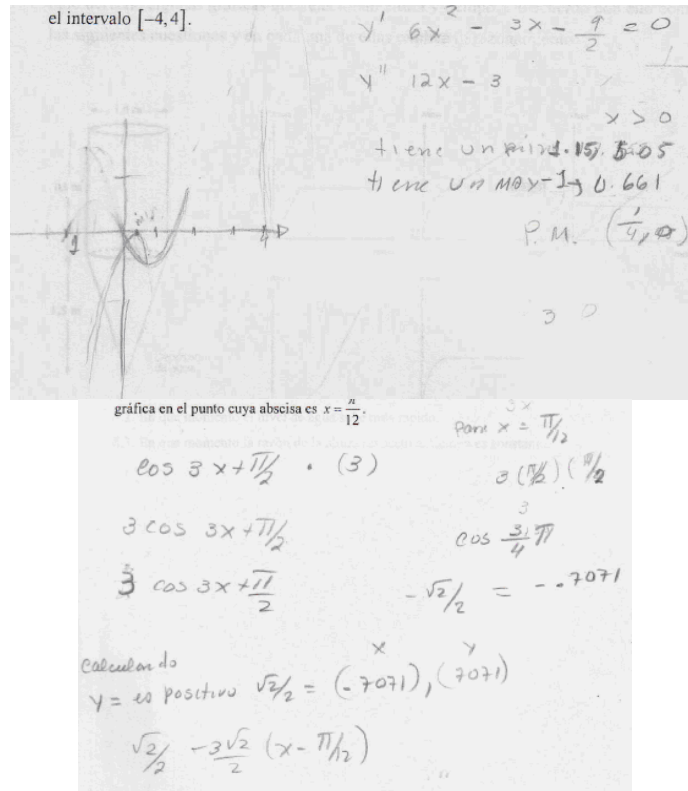 el intervalo [−4,4].
y' 6x² − 3x − 9/2 = 0
y'' 12x − 3
x > 0
tiene un 1.15, 5.05
tiene un MAX −1, 0.661
P. M. (1/4,
1
3 0
gráfica en el punto cuya abscisa es x = π/12.
3x
Para x = π/12
cos 3x+π/2 · (3)
3(π/2)(π/2
3 cos 3x+π/2
3
cos 3/4 π
3 cos 3x+π/2
−√2/2 = −.7071
calculando
x y
y = es positivo √2/2 = (−.7071), (7071)
√2/2 −3√2/2 (x − π/12)